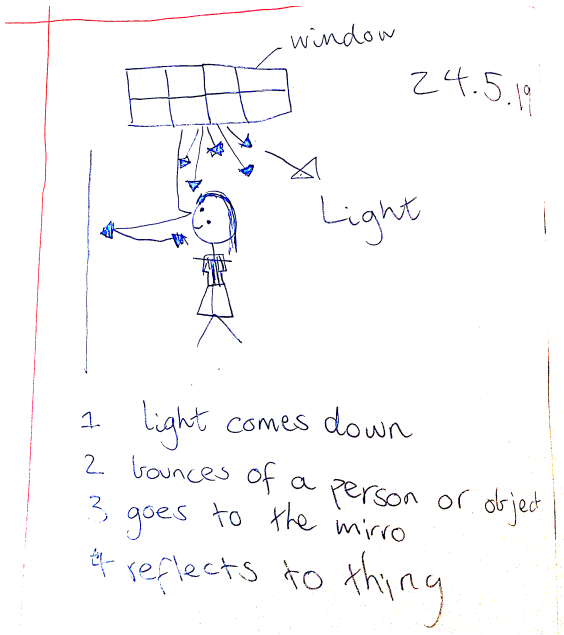 window
24.5.19
Light
1 light comes down
2 bounces of a person or object
3, goes to the mirro
4 reflects to thing